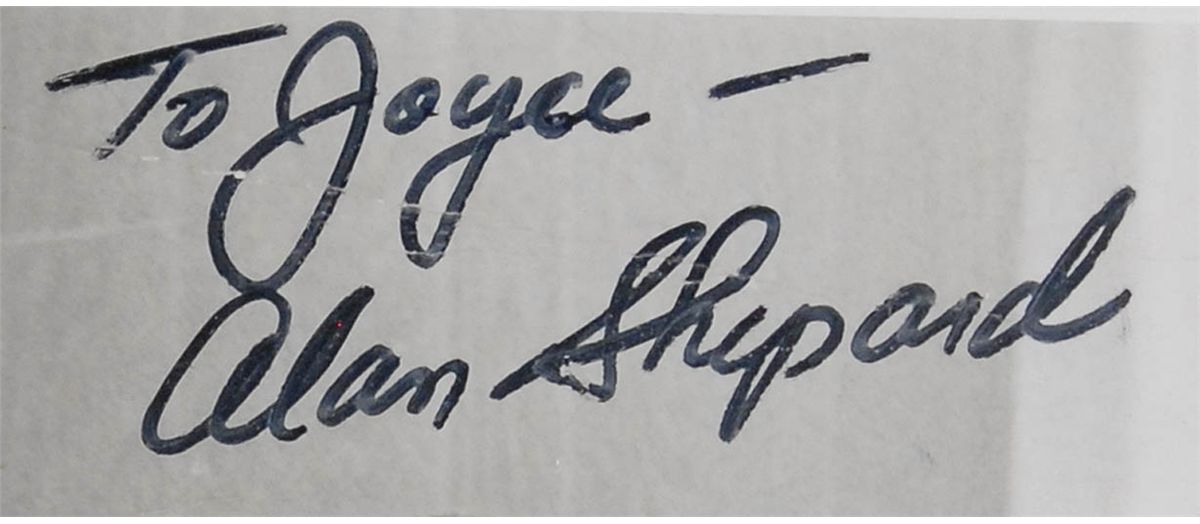 To Joyce —
Alan Shepard